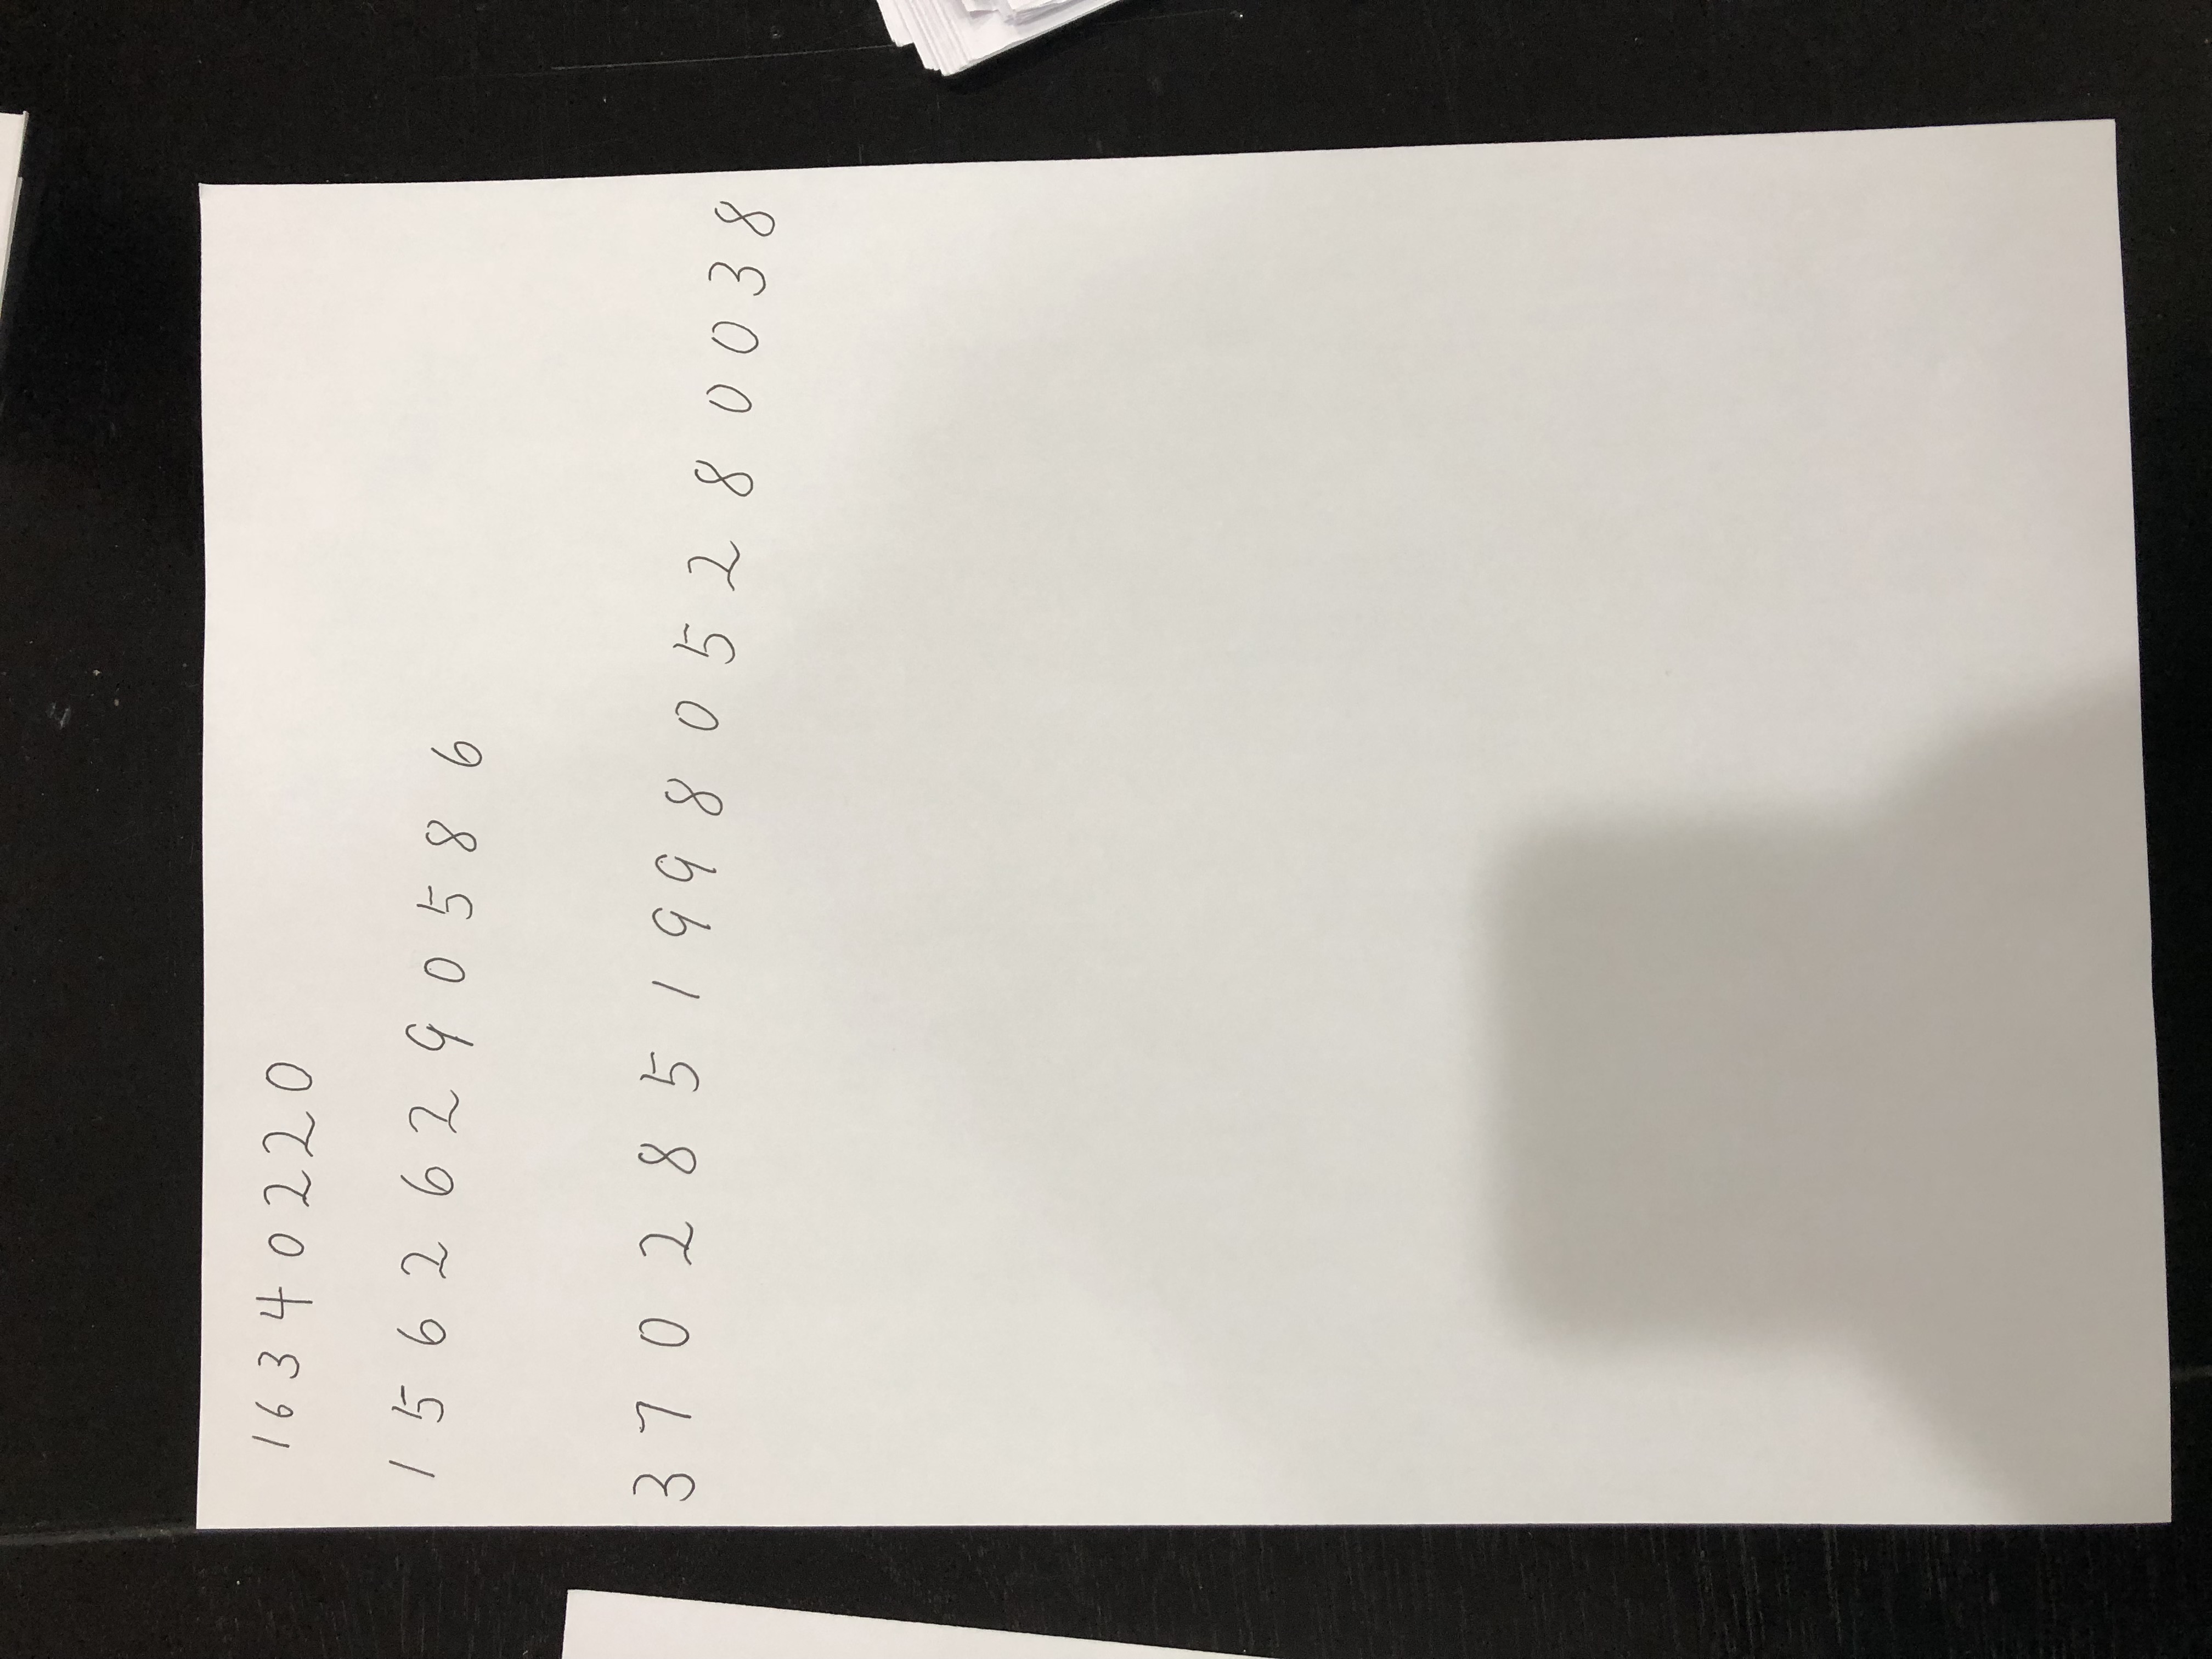 16340220
15626290586
370285199805280038